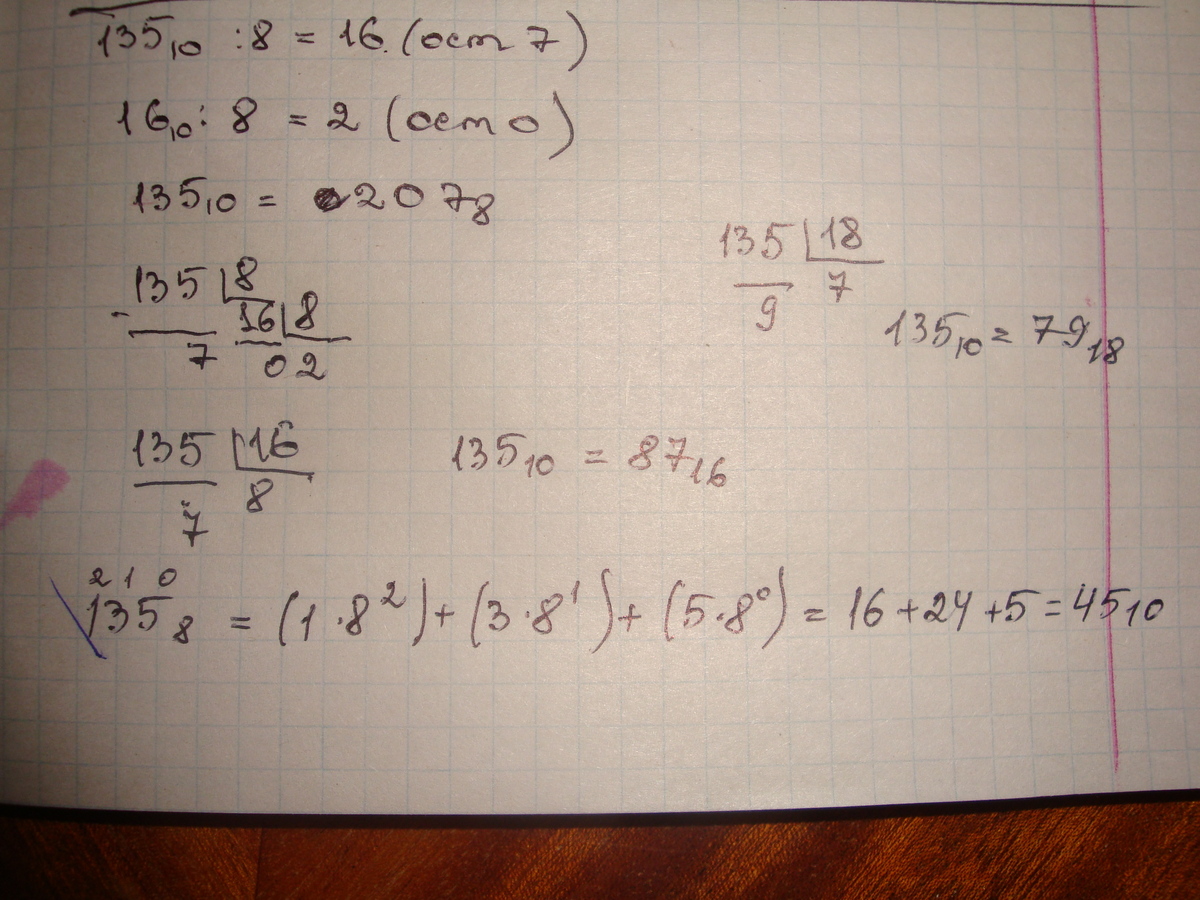 135₁₀ : 8 = 16. (ост 7)
16₁₀ : 8 = 2 (ост 0)
135₁₀ = 207₈
135 | 8
- 16 | 8
7 0 2
135 | 18
9 7
135₁₀ = 79₁₈
135 | 16
7 8
135₁₀ = 87₁₆
2 1 0
135₈ = (1·8²)+(3·8¹)+(5·8⁰) = 16+24+5=45₁₀